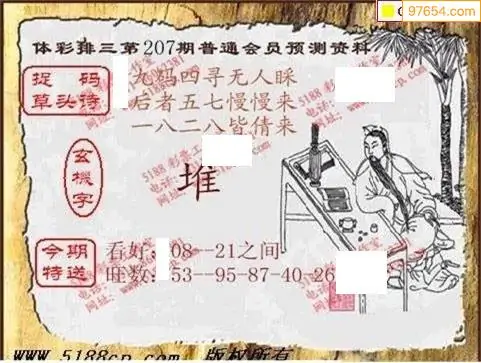 97654.com
体彩排三第207期普通会员预测资料
捉码
草头诗
九码四寻无人睬
后者五七慢慢来
一八二八皆倩来
玄機字
堆
今期
特送
看好:08--21之间
旺数:53--95-87-40-26
www.5188cp.com 版权所有